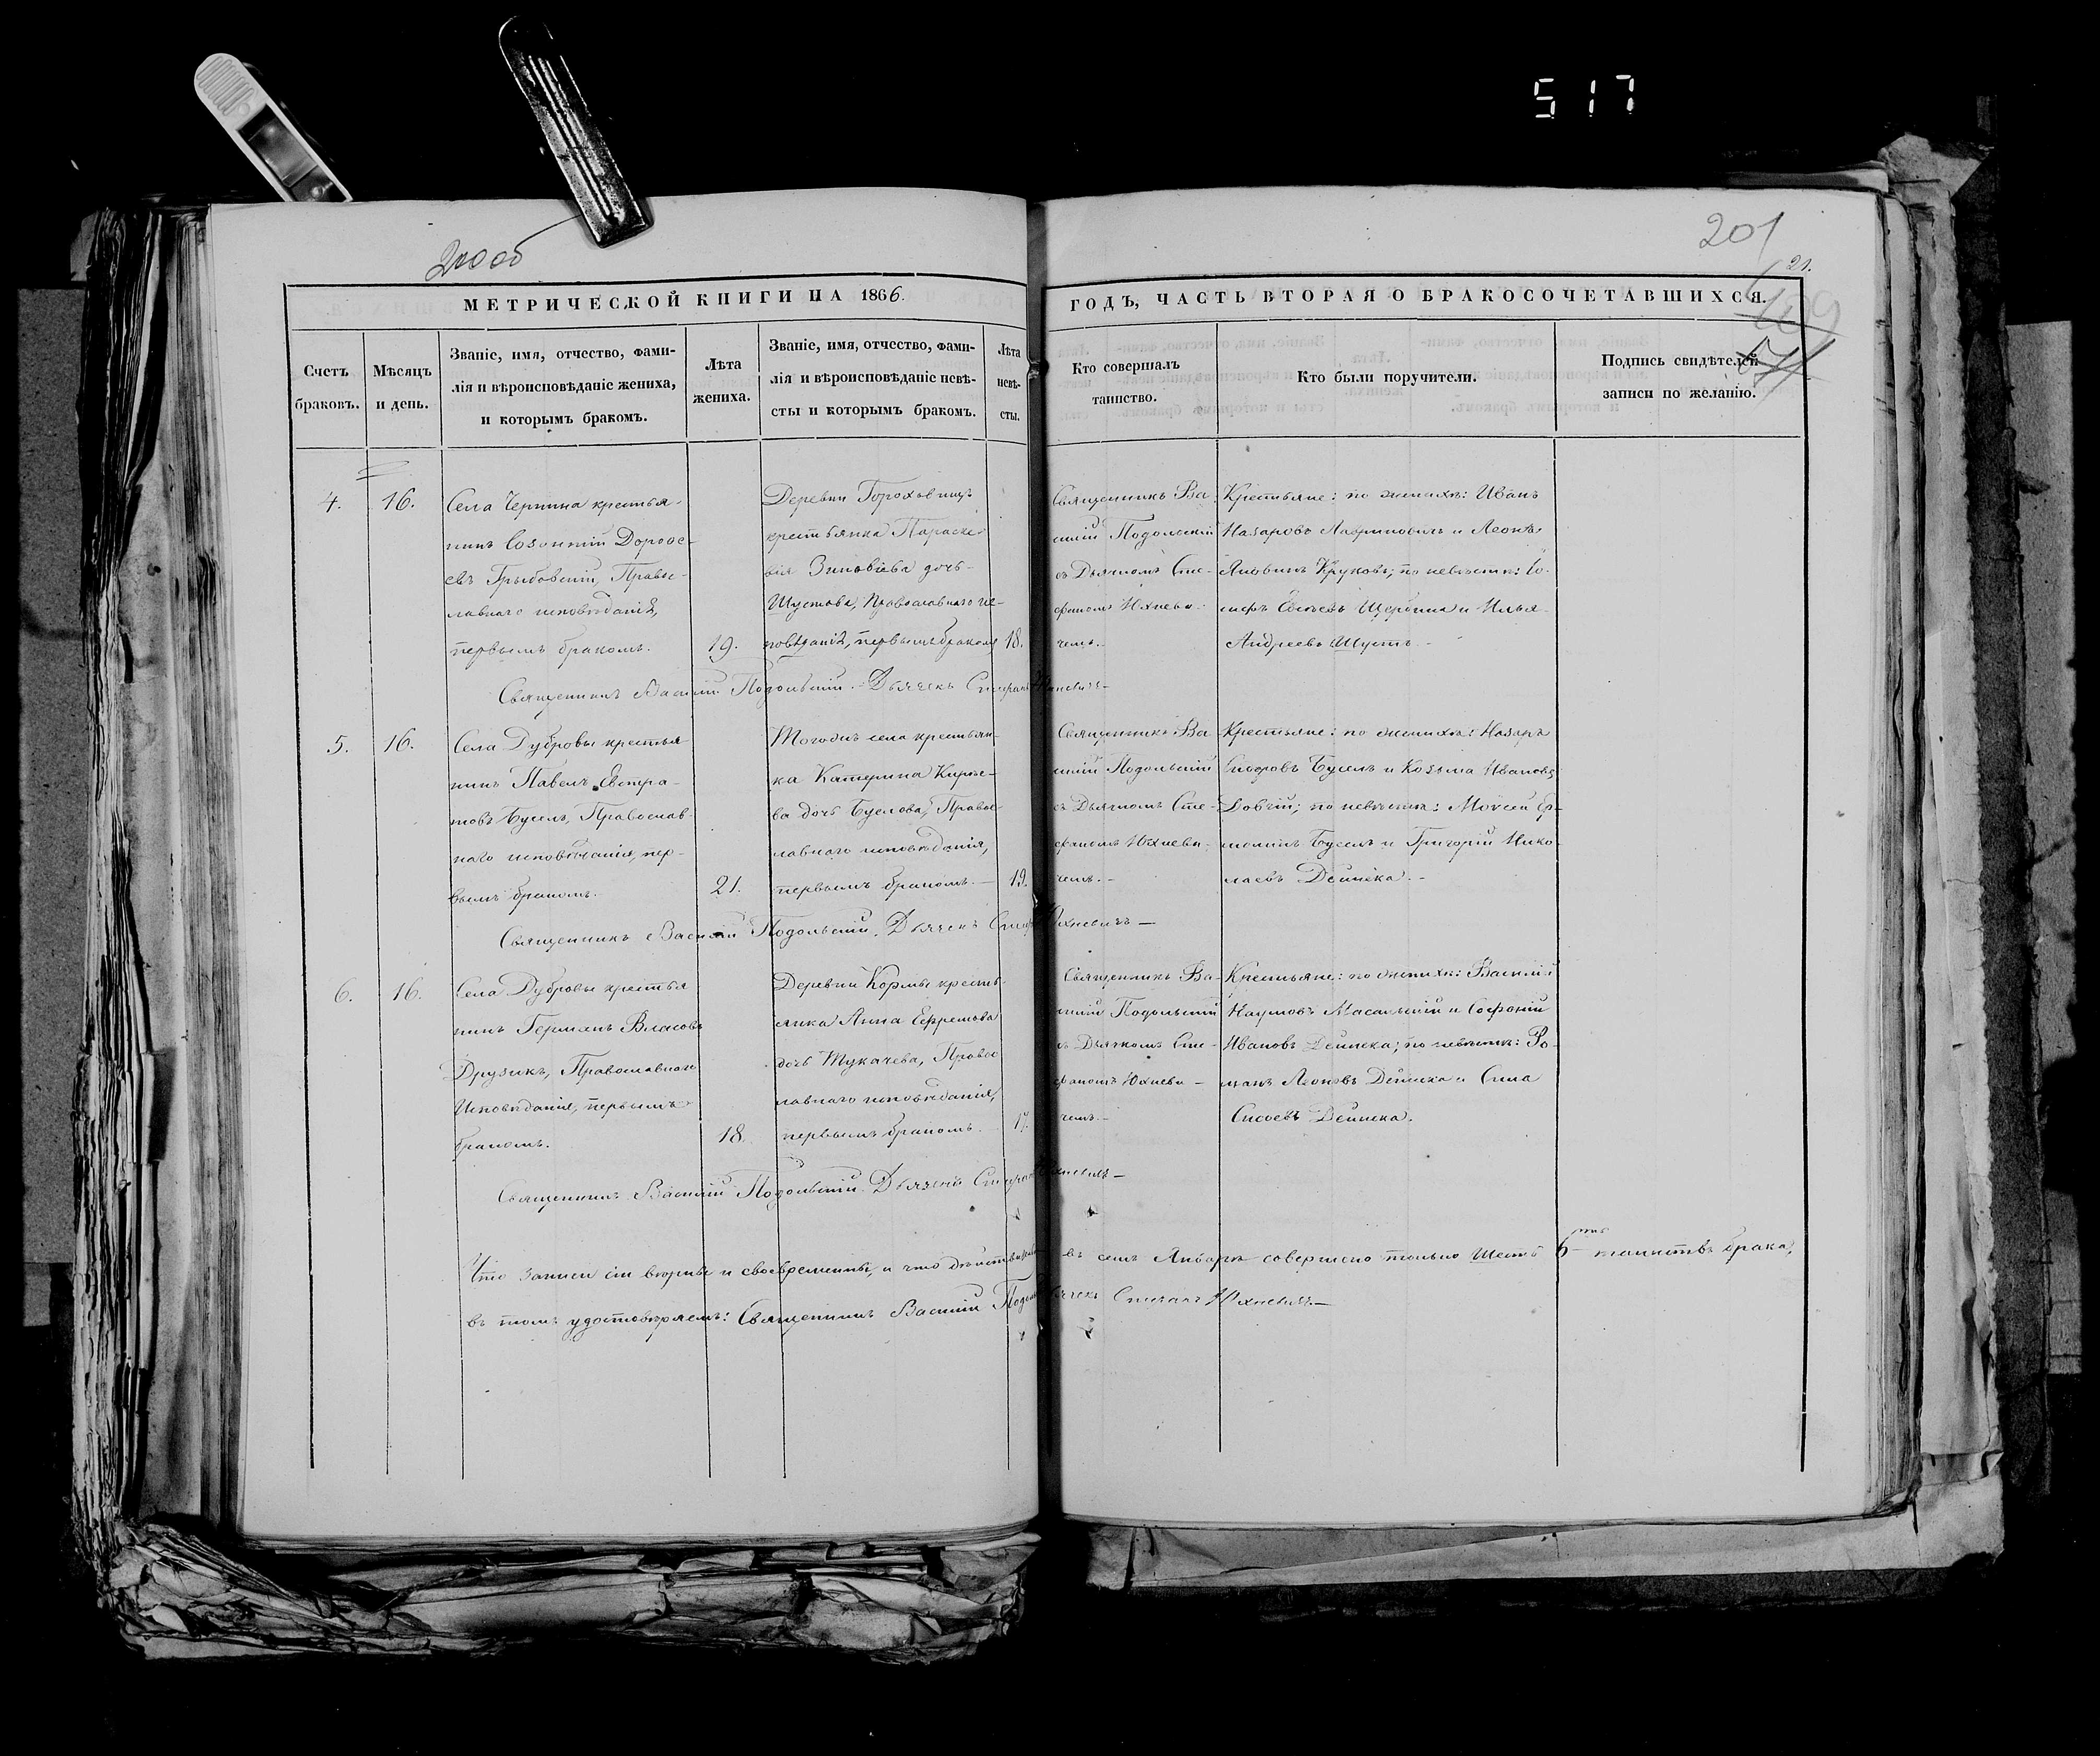 517
200об
201
21.
МЕТРИЧЕСКОЙ КНИГИ НА 1866.
ГОДЪ, ЧАСТЬ ВТОРАЯ О БРАКОСОЧЕТАВШИХСЯ.
Счетъ
браковъ.
Мѣсяцъ
и день.
Званіе, имя, отчество, фами-
лія и вѣроисповѣданіе жениха,
и которымъ бракомъ.
Лѣта
жениха.
Званіе, имя, отчество, фами-
лія и вѣроисповѣданіе невѣ-
сты и которымъ бракомъ.
Лѣта
невѣ-
сты.
Кто совершалъ
таинство.
Кто были поручители.
Подпись свидѣтелей
записи по желанію.
4.
16.
Села Чернина крестья-
нинъ Созонтій Дорофе-
евъ Грыбовскій, Правос-
лавнаго исповѣданія,
первымъ бракомъ.
19.
Деревни Гороховищъ
крестьянка Параске-
вія Зиновіева дочь
Шустова, Православнаго ис-
повѣданія, первымъ бракомъ
18.
Священникъ Ва-
силій Подольскій
съ Дьячкомъ Сте-
фаномъ Юхневи-
чемъ.-
Крестьяне: по женихѣ: Иванъ
Назаровъ Лавриновичъ и Леонъ
Круковъ; по невѣстѣ: Іо-
сифъ Щербина и Илья
Андреевъ Шустъ.-
Священникъ Василій Подольскій. Дьячекъ Стефанъ Юхневичъ-
5.
16.
Села Дубровы крестья
нинъ Павелъ Евстра-
товъ Буселъ, Православ-
наго исповѣданія, пер-
вымъ бракомъ.
21.
Тогожъ села крестьян-
ка Катерина Кирѣе-
ва дочь Буслова, Правос-
лавнаго исповѣданія,
первымъ бракомъ.-
19.
Священникъ Ва-
силій Подольскій
съ Дьячкомъ Сте-
фаномъ Юхневи-
чемъ.-
Крестьяне: по женихѣ: Назаръ
Буселъ и Козьма Ивановъ
по невѣстѣ: Моисей Ер-
молинъ Буселъ и Григорій Нико-
лаевъ Дейнека.-
Священникъ Василій Подольскій. Дьячекъ Стефанъ Юхневичъ-
6.
16.
Села Дубровы крестья
нинъ Германъ Власовъ
Друзикъ, Православнаго
Исповѣданія, первымъ
бракомъ.
18.
Деревни Кормы кресть-
янка Анна Ефремова
дочь Тукачева, Правос
лавнаго исповѣданія,
первымъ бракомъ.
17.
Священникъ Ва-
силій Подольскій
съ Дьячкомъ Сте-
фаномъ Юхневи-
чемъ.-
Крестьяне: по женихѣ: Василій
Наумовъ Масальскій и Софоній
Ивановъ Дейнека; по невѣстѣ: Ро-
манъ Леоновъ Дейнека и Сила
Сысоевъ Дейнека.
Священникъ Василій Подольскій. Дьячекъ Стефанъ Юхневичъ-
Что записи сіи вѣрны и своевременны, и что дѣйствительно въ семъ Январѣ совершено только шесть 6 таинствъ брака,
въ томъ удостовѣряемъ: Священникъ Василій Дьячекъ Стефанъ Юхневичъ.-